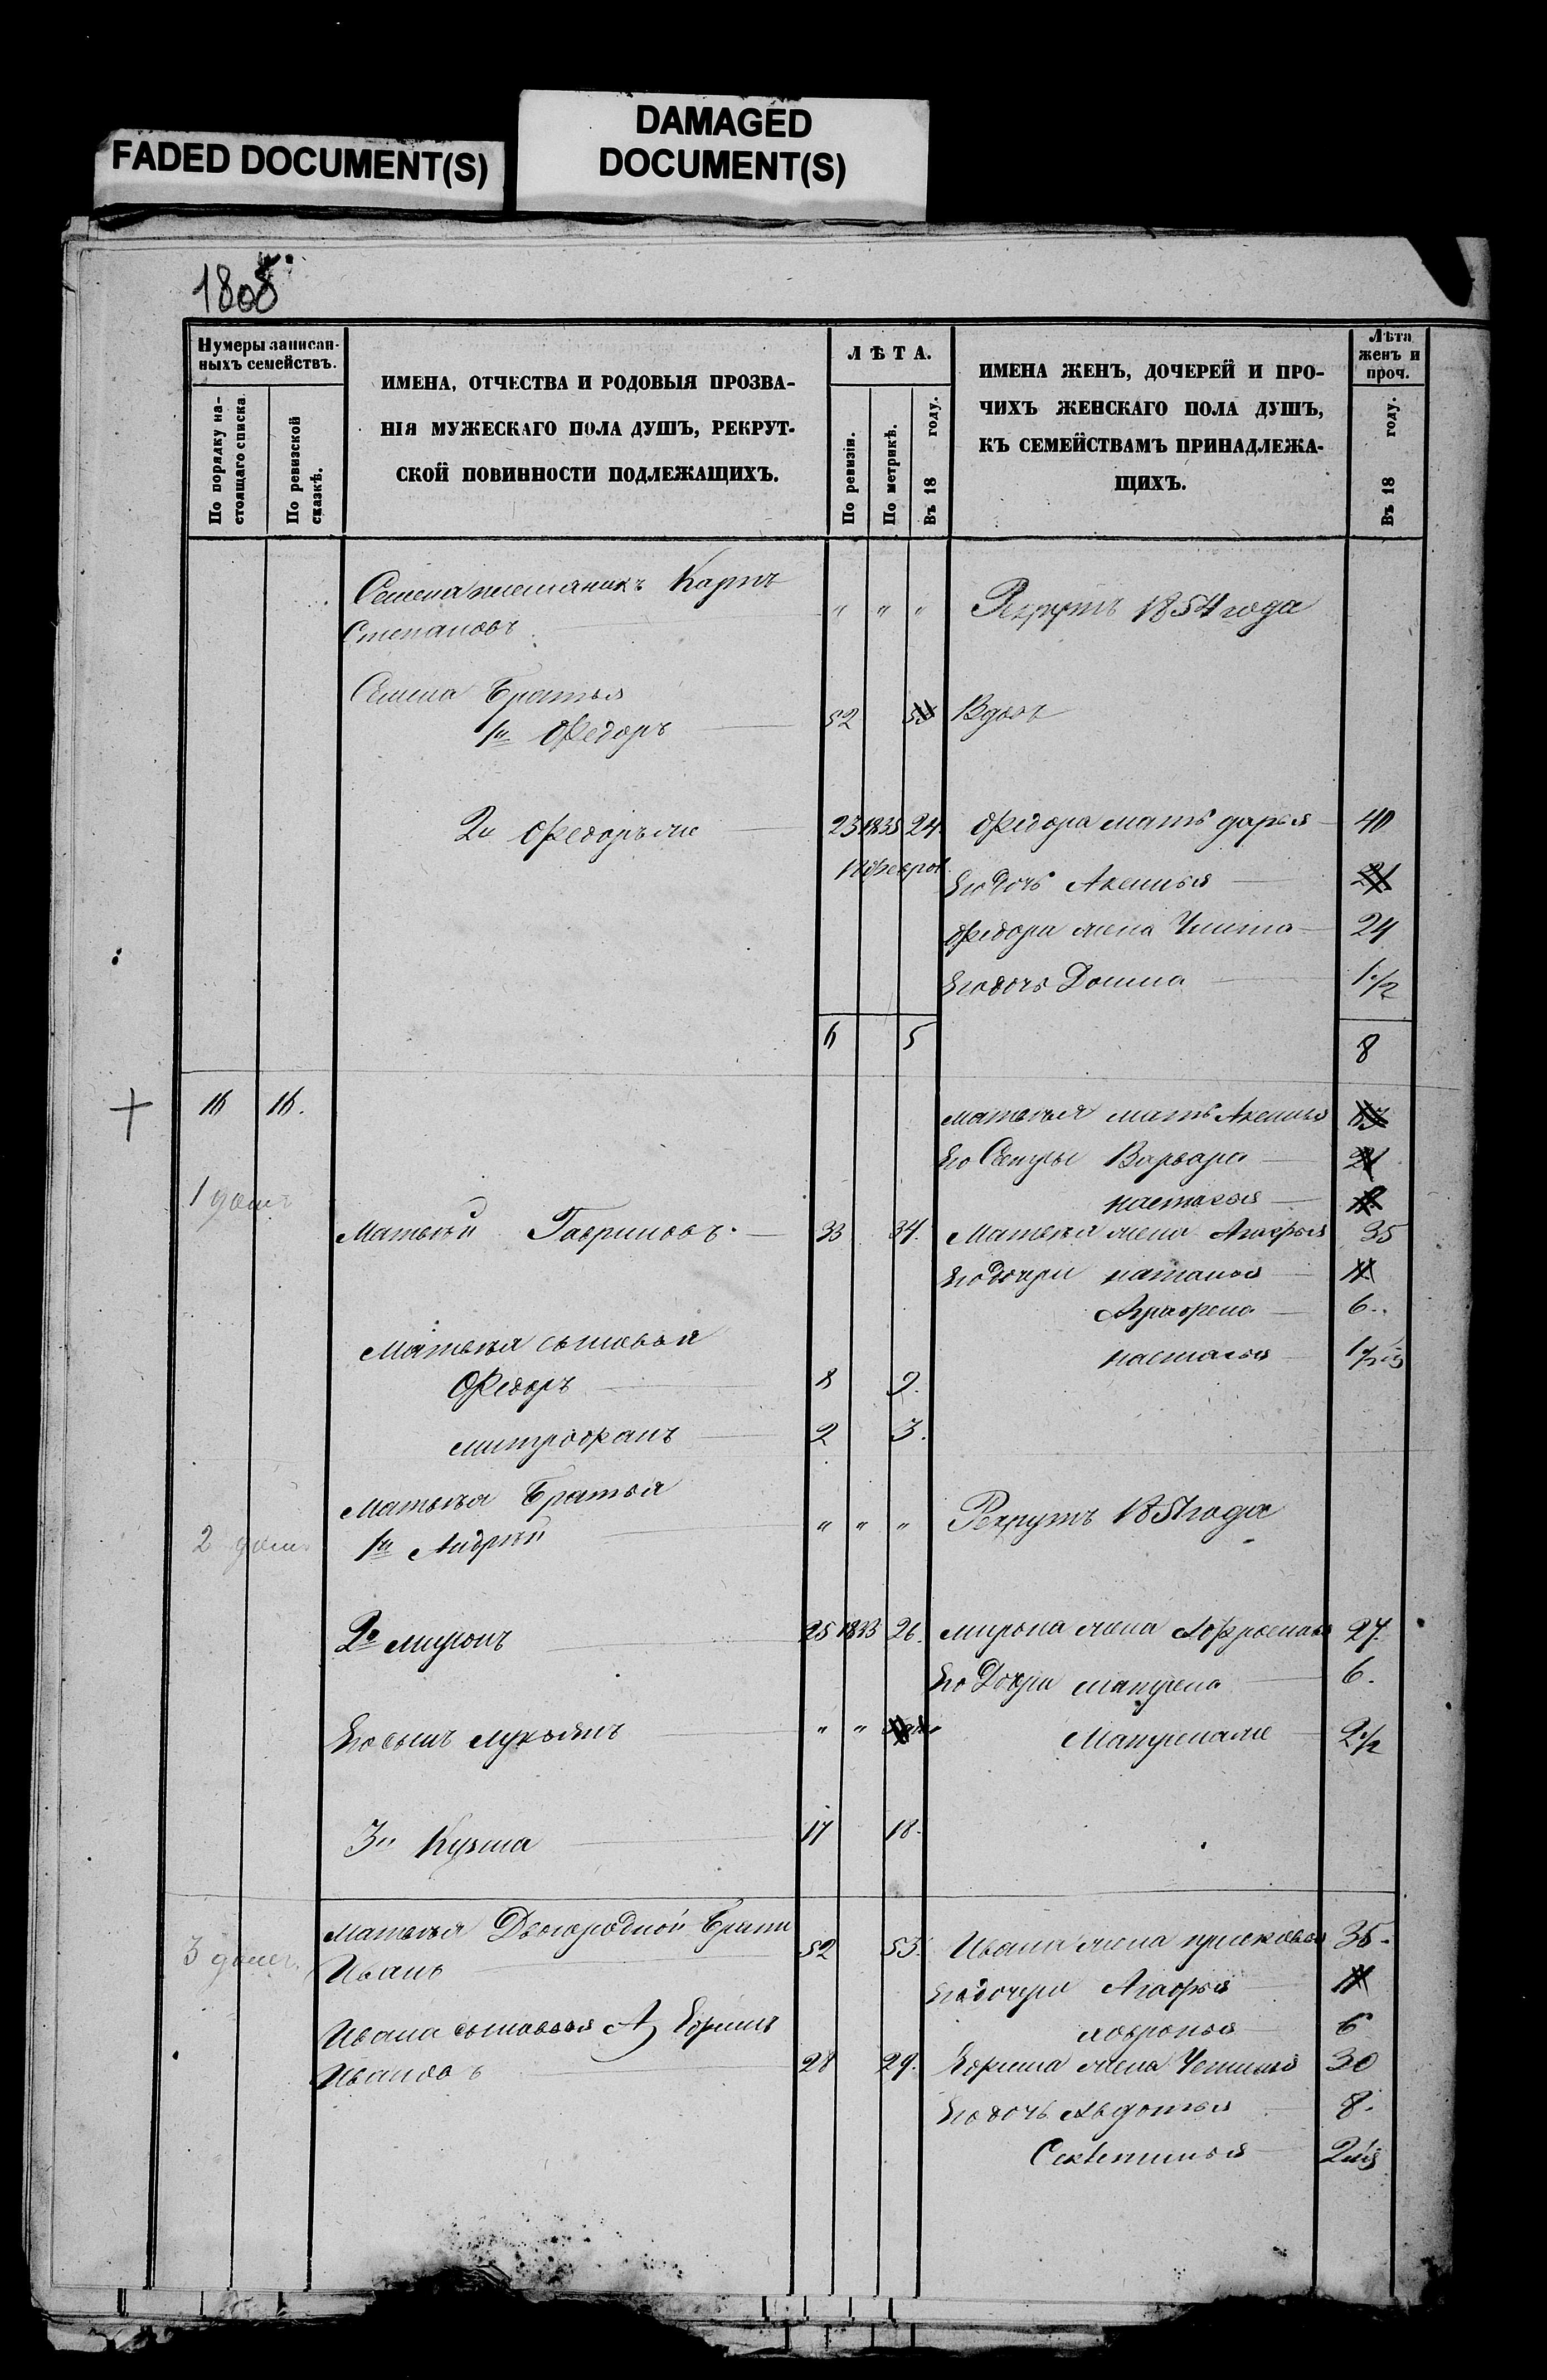 FADED DOCUMENT(S)
DAMAGED
DOCUMENT(S)
1808
Нумеры записан-
ныхъ семействъ.
По порядку на-
стоящаго списка
По ревизской
сказкѣ.
ИМЕНА, ОТЧЕСТВА И РОДОВЫЯ ПРОЗВА-
НІЯ МУЖЕСКАГО ПОЛА ДУШЪ, РЕКРУТ-
СКОЙ ПОВИННОСТИ ПОДЛЕЖАЩИХЪ.
ЛѢТА.
По ревизіи.
По метрикѣ.
Въ 18 году.
ИМЕНА ЖЕНЪ, ДОЧЕРЕЙ И ПРО-
ЧИХЪ ЖЕНСКАГО ПОЛА ДУШЪ,
КЪ СЕМЕЙСТВАМЪ ПРИНАДЛЕЖА-
ЩИХЪ.
Лѣта
женъ и
проч.
Въ 18 году.
Семена племяникъ Карпъ
Степановъ " " " Рекрутъ 1854 года
Семена Братья
1й Федоръ 52 Вдовъ
2й Федоръ же 23 1835 24. Федора мать дарья 40
Его дочь Аксинья
Федора жена 24
Его дочь Домна 1 1/2
6 5 8
16 16. Матвѣя мать Аксинья
Его Сестры Варвара
1 домъ настасья
Матвѣй Гавриловъ. 33 34. Матвѣя жена Агафья 35
Его дочери наталья
Аграфена 6.
Матвѣя сыновья настасья
Федоръ 8 9.
митрофанъ 2 3.
Матвѣя Братья
2 домъ 1й Андрѣй " " " Рекрутъ 1851 года
2й миронъ 25 1833 26. мирона жена 27.
Его Дочри матрена 6.
Его сынъ лукьянъ " " Матрена же 2 1/2
3й Кузма 17 18.
Матвѣя Двоюродной Братъ
3 домъ. Иванъ 52 53. Ивана жена прасковья 35.
Его дочери Агафья
Ивана сыновья А, Ефимъ 6
Ивановъ 28 29. Ефима жена 30
Его дочь Авдотья 8.